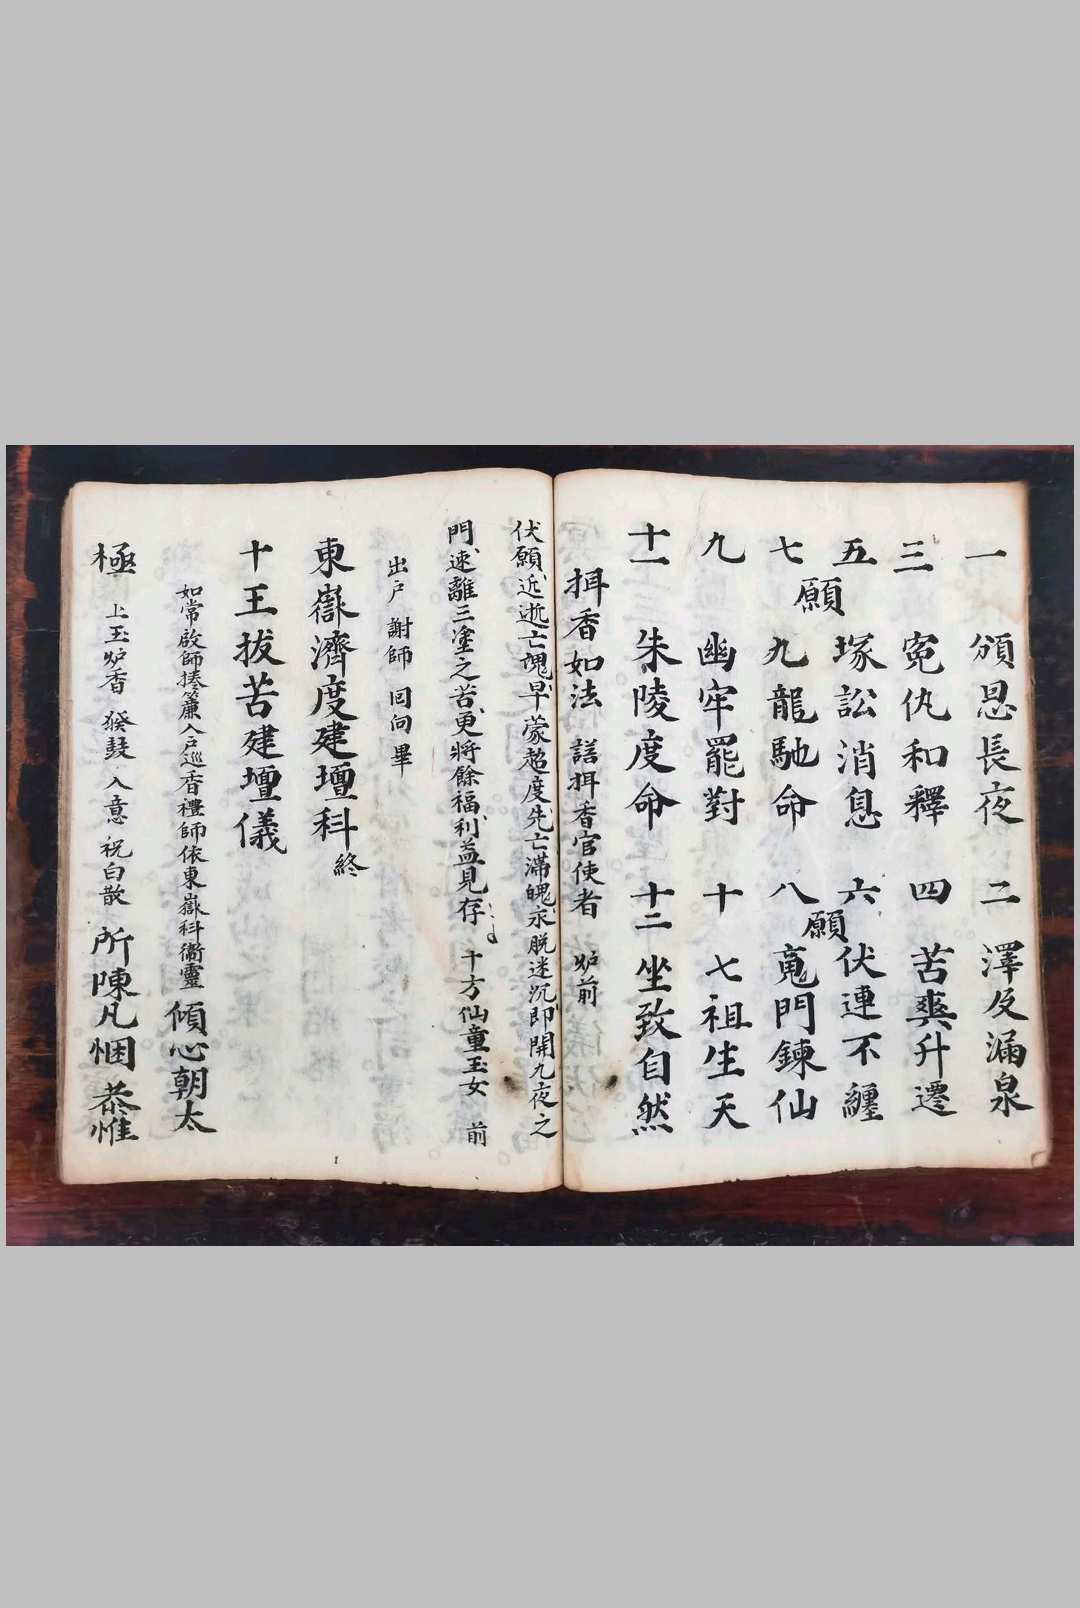 一 頒恩長夜 二 澤及漏泉
三 寃仇和釋 四 苦爽升遷
五 塚訟消息 六 伏連不纏
願 願
七 九龍馳命 八 𩲃門鍊仙
九 幽牢罷對 十 七祖生天
十一 朱陵度命 十二 坐致自然
拜香如法 請拜香官使者 炉前
伏願近逝亡魂早蒙超度先亡滯魄永脱迷沉即開九夜之
門速離三塗之苦更將餘福利益見存 十方仙童玉女 前
出户 謝師 囘向畢
東嶽濟度建壇科終
十王拔苦建壇儀
如常啟師捲簾入户巡香禮師依東嶽科衛靈 傾心朝太
極 上玉炉香 發鼓 入意 祝白散 所陳凡悃 恭惟